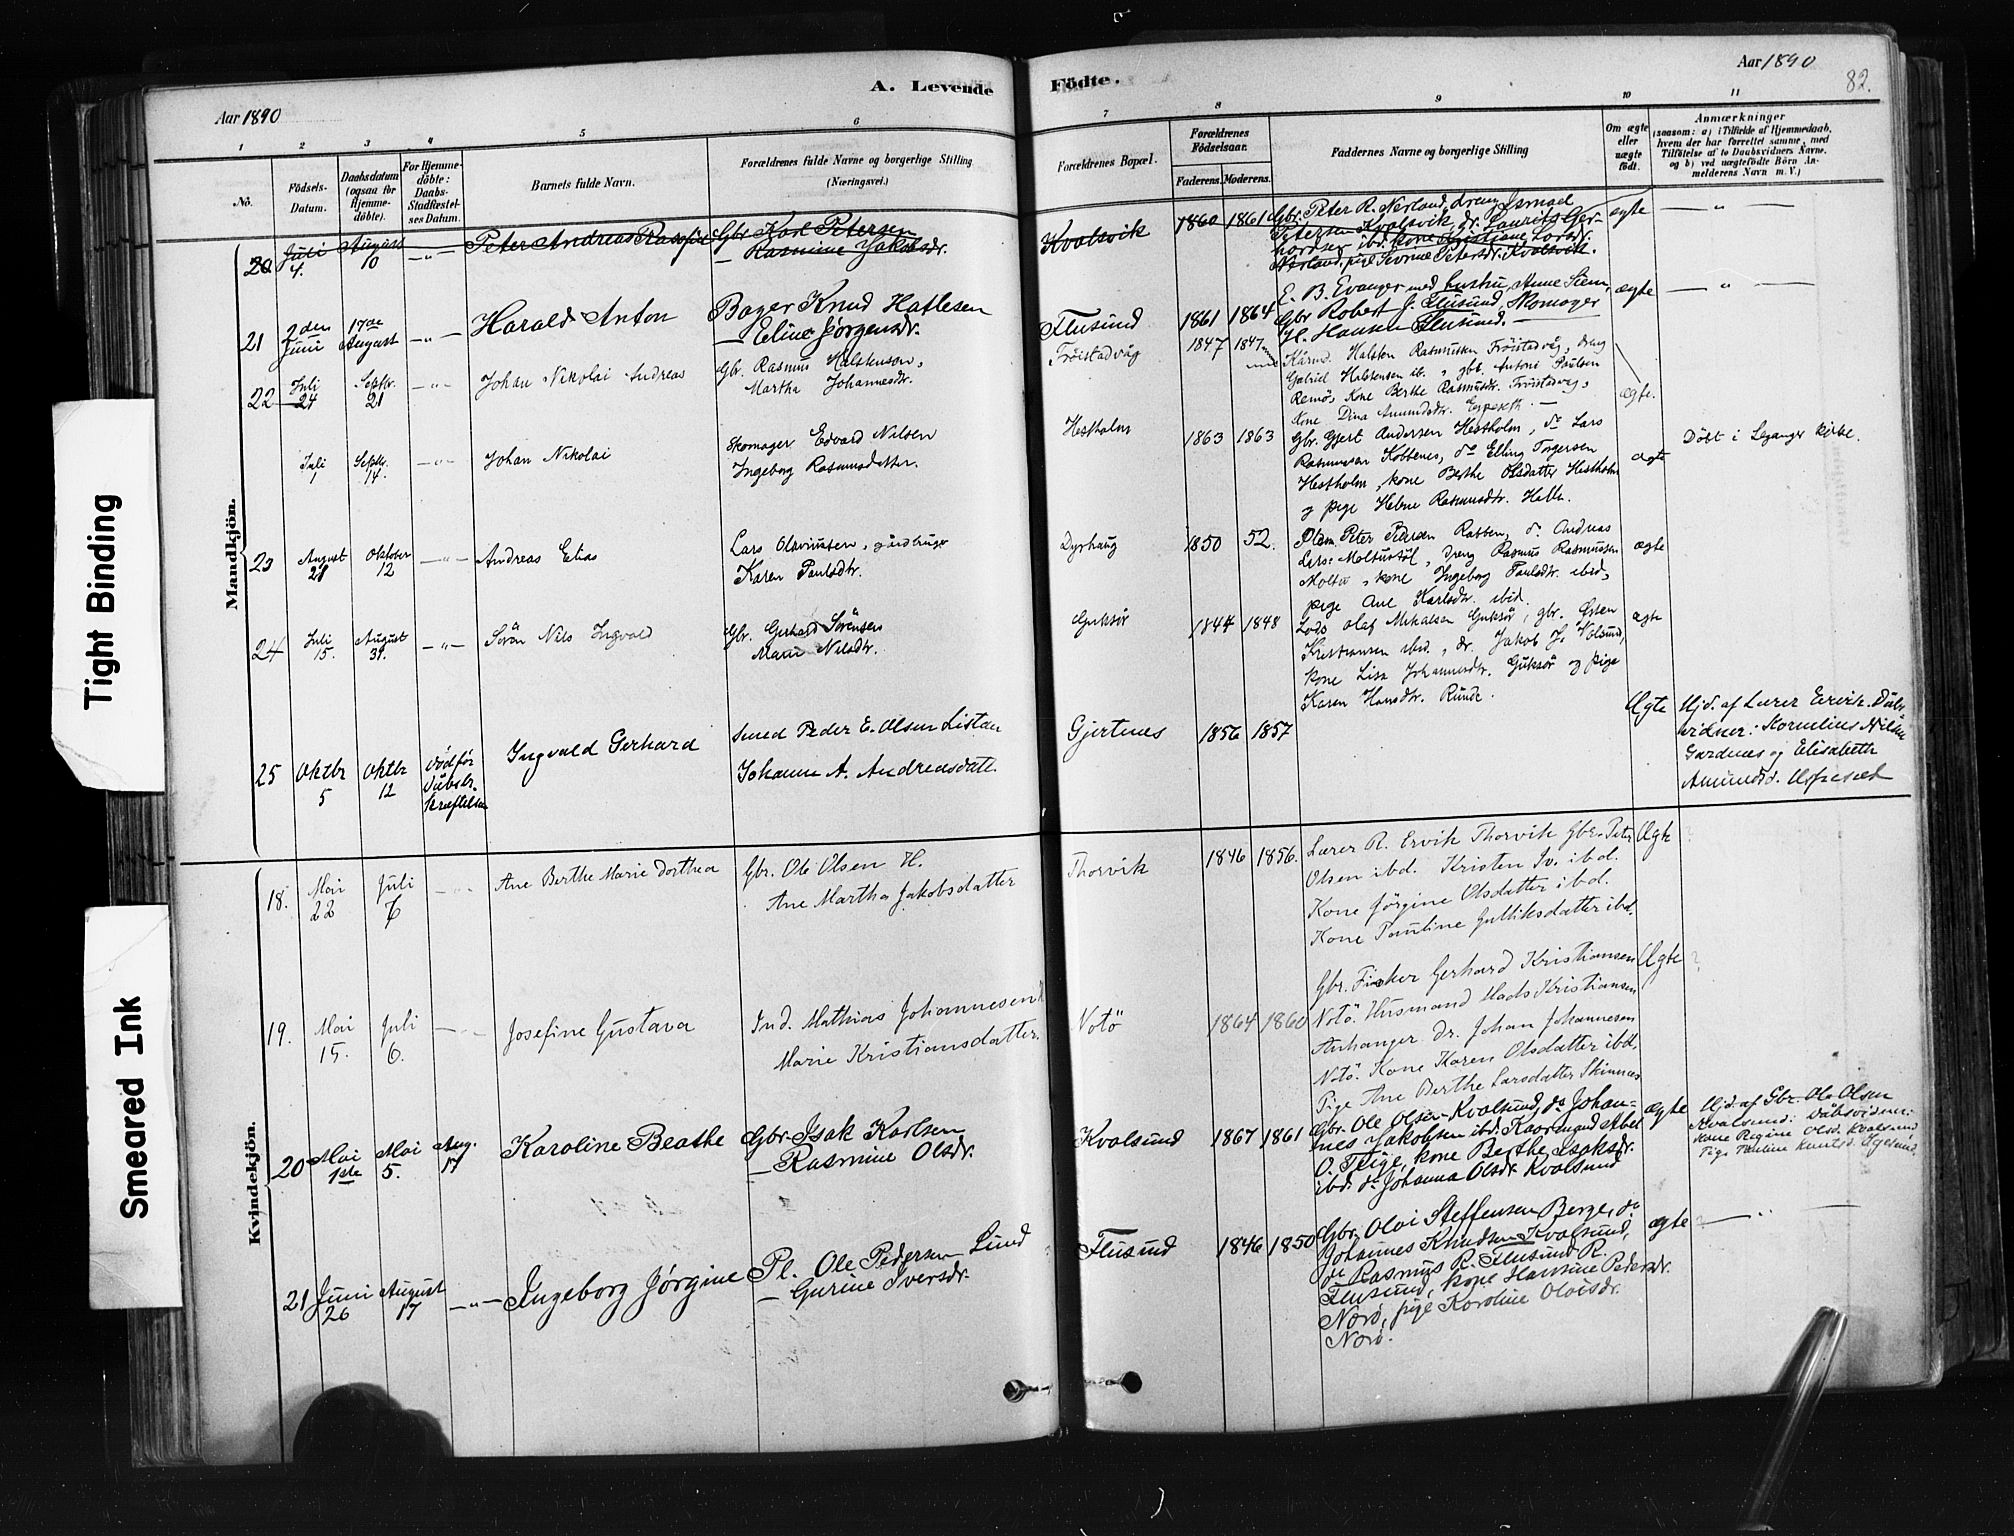 Aar 1890
A. Levende
Födte.
Aar 1890
82.
1
2
3
4
5
6
7
8
9
10
11
No.
Födsels-
Datum.
Daabsdatum
(ogsaa for
Hjemme-
döbte).
For Hjemme-
döbte:
Daabs-
Stadfæstel-
ses Datum.
Barnets fulde Navn.
Forældrenes fulde Navne og borgerlige Stilling
(Næringsvei.)
Forældrenes Bopæl.
Forældrenes
Födselsaar.
Faderens.
Moderens.
Faddernes Navne og borgerlige Stilling
Om ægte
eller
uægte
födt.
Anmærkninger
(saasom: a) i Tilfælde af Hjemmedaab,
hvem der har forrettet samme, med
Tilföielse af to Daabsvidners Navne,
og b) ved uægtefödte Börn An-
melderens Navn m. V.)
Mandkjön.
20
Juli
4.
August
10
— " —
Peter Andreas
Gbr. Karl Petersen
— Rasmine Jakobsdr.
Kvalsvik
1860
1861
Gbr. Peter R. Nerland, dreng Ismael
Petersen Kvalsvik, dr. Laurits Ger-
hardsen ibd. kone Kristiane Larsdr.
Nerland, pige Sevrine Petersdr. Kvalsvik.
ægte
— " —
21
2den
Juni
17de
August
— " —
Harald Anton
Bager Knud Hatlesen
— Eline Jørgensdr.
Flusund
1861
1864
E. B. Evanger med hustru, Anne Siem
Gbr Robert J. Flusund, Skomager
H. Hansen Flusund. —
ægte
— " —
22
Juli
24
Septbr.
21
— " —
Johan Nikolai Andreas
Gbr. Rasmus Halstensen,
Martha Johannesdr.
Frøistadvåg
1847
1847
Kårmd. Halsten Rasmussen Frøistadvåg, dreng
Gabriel Halstensen ib., gbr. Antoni Paulsen
Remö, Kone Berthe Rasmusdr. Frøistadvåg,
Kone Dina Amundsdr. Espeseth. —
ægte.
Juli
1
Septbr.
14.
— " —
Johan Nikolai
Skomager Edvard Nilsen
Ingeborg Rasmusdatter.
Hestholm
1863
1863
Gbr. Gjert Andersen Hestholm, do Lars
Rasmussen Kobbenes, do Elling Torgersen
Hestholm, kone Berthe Olsdatter Hestholm
og pige Helene Rasmusdtr. Hatle.
ægte
Döbt i Leganger kirke.
23
August
21
Oktober
12
— " —
Andreas Elias
Lars Olavinssen, gårdbruger
Karen Paulsdtr.
Dyrhaug
1850
52.
Plsm. Peter Pedersen Rabben, do Andreas
Lars: Moltustøl, dreng Rasmus Rasmussen
Moltu, kone Ingeborg Paulsdtr. ibid,
pige Ane Karlsdtr. ibid.
ægte
24
Juli
15.
August
31.
— " —
Sörin Nils Ingvald
Gbr. Gerhard Sörensen
Marie Nilsdtr.
Gurskör
1844
1848
Lods Olaf Mikalsen Gurskör, gbr. Østen
Kristiansen ibid., dr. Jakob J. Kvalsund,
kone Lisa Johannesdtr. Gurskör og pige
Karen Hansdtr. Runde.
ægte
25
Oktbr
5
Oktbr
12
Död för
Dåbsbe-
kræftelsen
Ingvald Gerhard
Smed Peder E. Olsen Listau
Johanne A. Andreasdatt.
Gjertnes
1856
1857
Ægte
Hjd. af Lærer Ervik. Dåbs-
vidner: Kornelius Nilsen
Gardnæs og Elisabeth
Amundsd. Espeset
Kvindekjön.
18.
Mai
22
Juli
6
— " —
Ane Berthe Marie Dorthea
Gbr. Ole Olsen H.
Ane Martha Jakobsdatter
Thorvik
1846
1856.
Lærer R. Ervik Thorvik Gbr. Peter
Olsen ibd. Kristen Iv. ibd.
Kone Jörgine Olsdatter ibd.
Kone Pauline Gulliksdatter ibd.
Ægte
19.
Mai
15.
Juli
6.
— " —
Josefine Gustava
Ind. Mathias Johannesen
Marie Kristiansdatter.
Notö
1864
1860
Gbr. Fisker Gerhard Kristiansen
Notö. Husmand Mads Kristiansen
Anhanger Dr. Johan Johannesen
Notö. Kone Karen Olsdatter ibd.
Pige Ane Berthe Larsdatter Skinnes
Ægte
20
Mai
1ste
Mai
5.
Aug.
17
Karoline Beathe
Gbr. Isak Karlsen
— Rasmine Olsdr.
Kvalsund
1867
1861
Gbr. Ole Olsen Kvalsund, do Johan-
nes Jakobsen ibd. Kaarmand Abel
O. Teige, kone Berthe Isaksdr.
ibd. do Johanna Olsdr. Kvalsund
ægte
Hjd. af Gbr. Ole Olsen
Kvalsund: Dåbsvidner:
Kone Regine Olsd. Kvalsund
Pige Pauline Knutsd. Igesund.
21
Juni
26
August
17
— " —
Ingeborg Jørgine
Pl. Ole Pedersen Lund
— Gurine Iversdr.
Flusund
1846
1850
Gbr. Oloi Steffensen Berge, do
Johannes Knudsen Kvalsund,
do Rasmus R. Flusund R.
Flusund, kone Hansine Pedersdr.
Norö, pige Karoline Oloisdr.
Norö.
ægte
— " —
Tight Binding
Smeared Ink